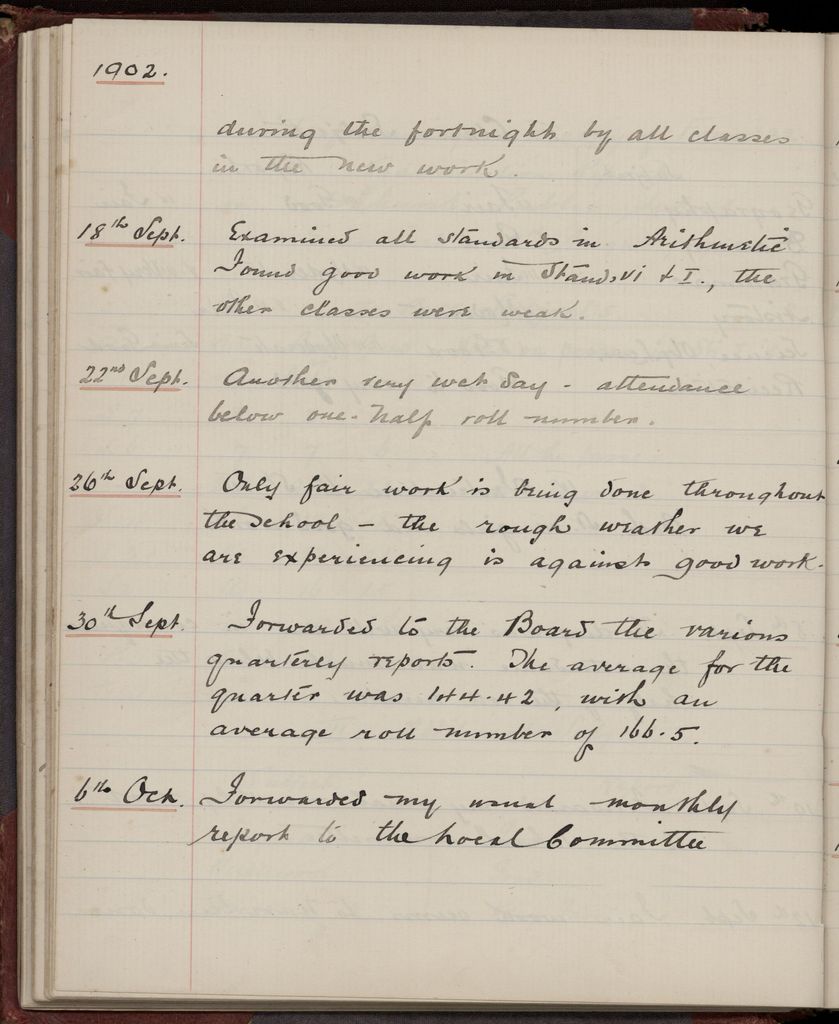 1902.
during the fortnight by all classes
in the new work.
18th Sept. Examined all standards in Arithmetic
Found good work in Stands VI & I., the
other classes were weak.
22nd Sept. Another very wet day - attendance
below one-half roll number.
26th Sept. Only fair work is being done throughout
the school — the rough weather we
are experiencing is against good work.
30th Sept. Forwarded to the Board the various
quarterly reports. The average for the
quarter was 144.42, with an
average roll number of 166.5.
6th Oct. Forwarded my usual monthly
report to the Local Committee